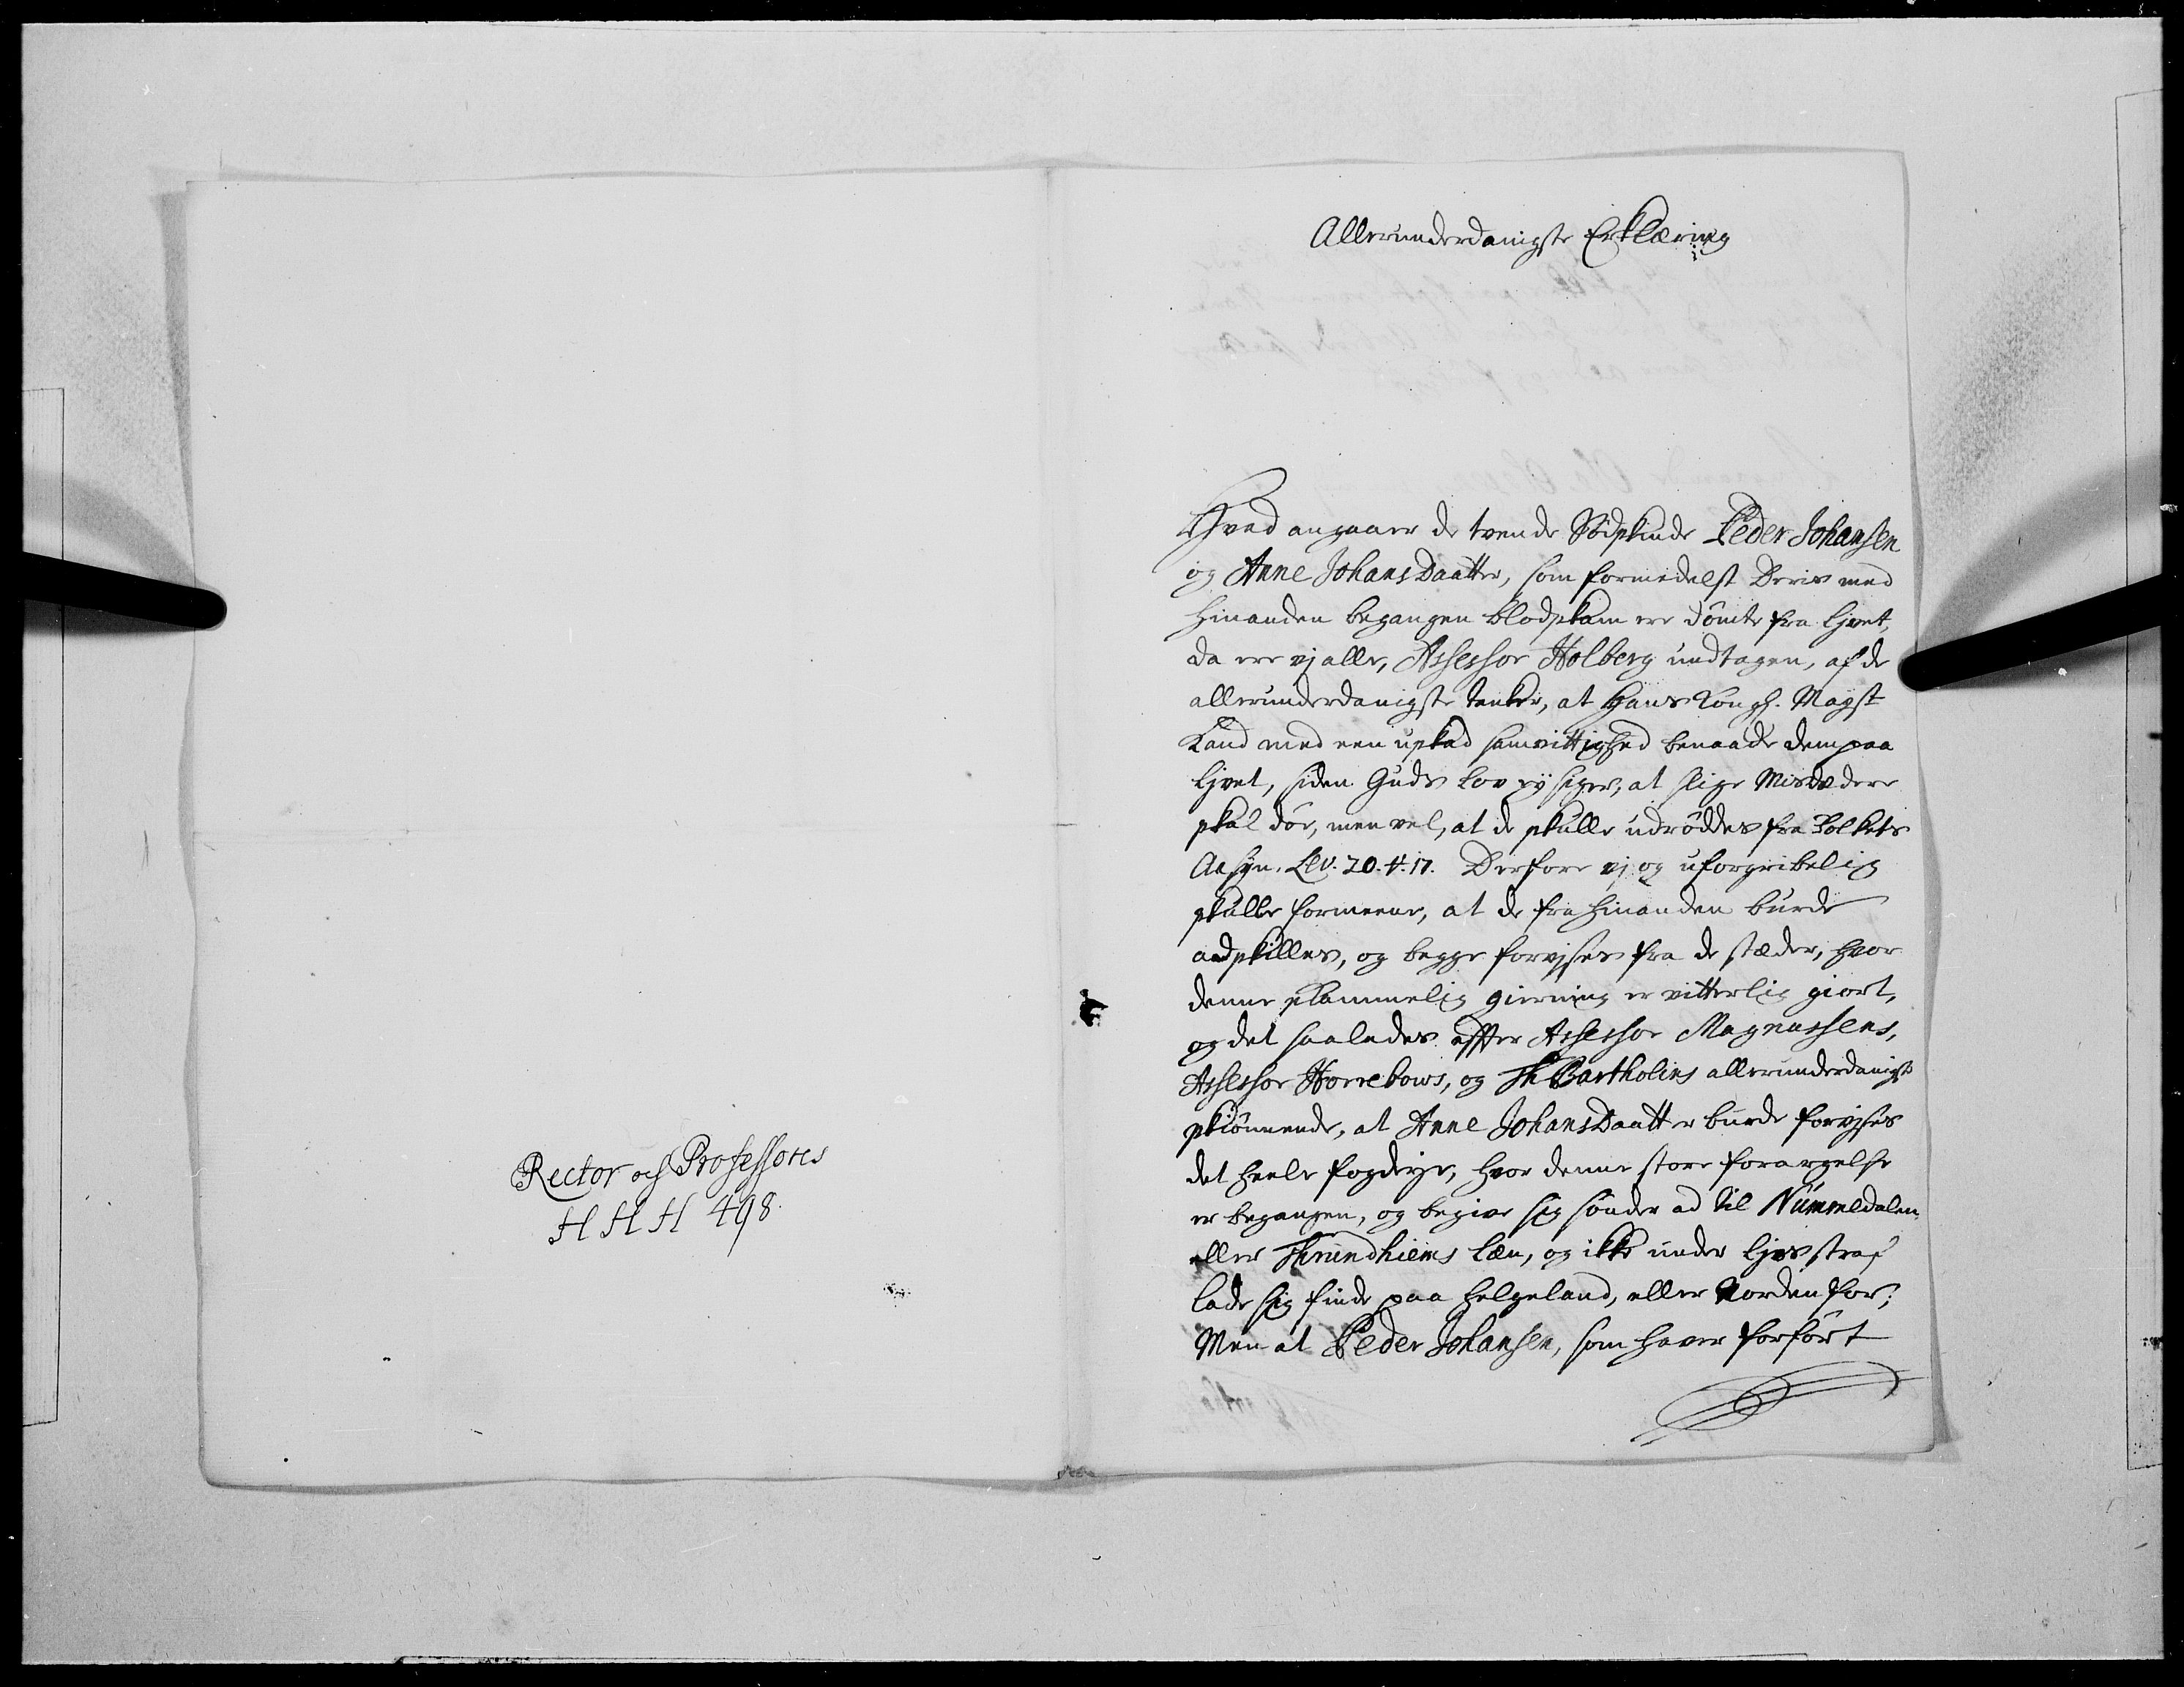 Rector och Professores
H H H 498.
Allerunderdanigste Erklæring
Hvad angaaer de tvende Sødskinde Peder Johansen
og Anne Johans Daatter, som formedelst Deris med
hinanden begangen blodskam ere dømte fra livet,
da ere vj alle, Assessor Holberg undtagen, af de
allerunderdanigste tanker, at Hans Kongl. Mayst
Kand med een uskad samvittighed benaade dem paa
livet, siden Guds Lov ey siger, at slige Misdædere
skal døe, men vel, at de skulle udrøddes fra Folkets
Aasyn. Lev. 20. v. 17. Derfore vj og uforgribelig
skulle formeene, at de fra hinanden burde
adskilles, og begge forvjses fra de stæder, hvor
denne skammelig gierning er vitterlig giort,
og det saaledes effter Assessor Magnussens,
Assessor Horrebows, og Th Bartholins allerunderdanigst
skiønnende, at Anne Johans Daatter burde forvjses
det heele fogderje, hvor denne store forargelse
er begangen, og begive sig sønder ad til Nummedalen
eller Thrundhiems Læn, og ikke under ljvs straf
lade sig finde paa Helgeland, eller Norden for;
Men at Peder Johansen, som haver forført